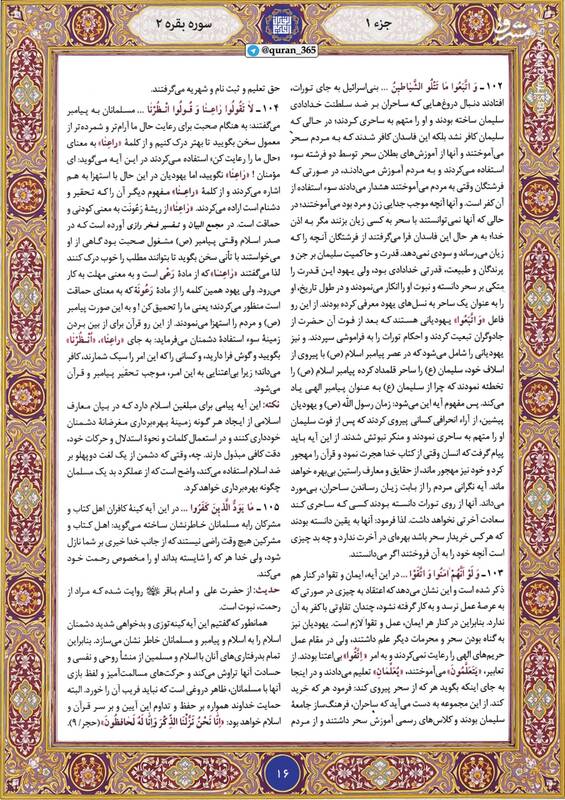 جزء ۱
سوره بقره ۲
مشرق
@quran_365
۱۰۲ـ وَ اتَّبَعُوا مَا تَتْلُو الشَّيَاطِينُ ... بنی‌اسرائیل به جای تورات،
افتادند دنبال دروغ‌هایی که ساحران بر ضد سلطنت خدادادی
سلیمان ساخته بودند و او را متهم به ساحری کردند؛ در حالی که
سلیمان کافر نشد بلکه این فاسدان کافر شدند که به مردم سحر
می‌آموختند و آنها از آموزش‌های بطلان سحر توسط دو فرشته سوء
استفاده می‌کردند و به مردم آموزش می‌دادند، در صورتی که
فرشتگان وقتی به مردم می‌آموختند هشدار می‌دادند سوء استفاده از
آن کفر است. و آنها آنچه موجب جدایی زن و مرد بود می‌آموختند؛ در
حالی که آنها نمی‌توانستند با سحر به کسی زیان بزنند مگر به اذن
خدا؛ به هر حال این فاسدان فرا می‌گرفتند از فرشتگان آنچه را که
زیان می‌رساند و سودی نمی‌دهد. قدرت و حاکمیت سلیمان بر جن و
پرندگان و طبیعت، قدرتی خدادادی بود، ولی یهود این قدرت را
متکی بر سحر دانسته و نبوت او را انکار می‌نمودند و در طول تاریخ، او
را به عنوان یک ساحر به نسل‌های یهود معرفی کرده بودند. از این رو
فاعل «وَ اتَّبَعُوا» یهودیانی هستند که بعد از فوت آن حضرت از
جادوگران تبعیت کردند و احکام تورات را به فراموشی سپردند. و نیز
یهودیانی را شامل می‌شود که در عصر پیامبر اسلام (ص) با پیروی از
اسلاف خود، سلیمان (ع) را ساحر قلمداد کرده پیامبر اسلام (ص) را
تخطئه نمودند که چرا از سلیمان (ع) به عنوان پیامبر الهی یاد
می‌کند. پس مفهوم آیه این می‌شود: زمان رسول الله (ص) و یهودیان
پیشین، از آراء انحرافی کسانی پیروی کردند که پس از فوت سلیمان
او را متهم به ساحری نمودند و منکر نبوتش شدند. از این آیه باید
پیام گرفت که انسان وقتی از کتاب خدا هجرت نمود و قرآن را مهجور
کرد و خود نیز مهجور ماند، از حقایق و معارف راستین بی‌بهره خواهد
ماند. آیه نگرانی مردم را از بابت زیان رساندن ساحران، بی‌مورد
می‌داند. آنها از روی تورات دانسته بودند کسی که ساحری کند
سعادت آخرتی نخواهد داشت. لذا فرمود: آنها به یقین دانسته بودند
که هر کس خریدار سحر باشد بهره‌ای در آخرت ندارد و چه بد چیزی
است آنچه خود را به آن فروختند اگر می‌دانستند.
۱۰۳ـ وَ لَوْ أَنَّهُمْ آمَنُوا وَ اتَّقَوْا ... در این آیه، ایمان و تقوا در کنار هم
ذکر شده است و این نشان می‌دهد که اعتقاد به چیزی در صورتی که
به عرصهٔ عمل نرسد و به کار گرفته نشود، چندان تفاوتی با کفر به آن
ندارد. بنابراین در کنار هر ایمان، عمل و تقوا لازم است. یهودیان نیز
به گناه بودن سحر و محرمات دیگر علم داشتند، ولی در مقام عمل
حریم‌های الهی را رعایت نمی‌کردند و به امر «اِتَّقُوا» بی‌اعتنا بودند. از
تعابیر، یَتَعَلَّمُونَ= می‌آموختند، «یُعَلِّمَانِ= تعلیم می‌دادند و در اینجا
به جای اینکه بگوید هر که از سحر پیروی کند؛ فرمود هر که خرید
کند. از این مجموعه به دست می‌آید که ساحران، فرهنگ‌ساز جامعهٔ
سلیمان بودند و کلاس‌های رسمی آموزش سحر داشتند و از مردم
حق تعلیم و ثبت نام و شهریه می‌گرفتند.
۱۰۴ـ لاَ تَقُولُوا رَاعِنَا وَ قُولُوا انْظُرْنَا ... مسلمانان به پیامبر
می‌گفتند: به هنگام صحبت برای رعایت حال ما آرام‌تر و شمرده‌تر از
معمول سخن بگویید تا بهتر درک کنیم و از کلمهٔ «راعِنَا» به معنای
«حال ما را رعایت کن» استفاده می‌کردند در این آیه می‌گوید: ای
مؤمنان ! «رَاعِنَا» نگویید، اما یهودیان در این حال با استهزا به هم
اشاره می‌کردند و از کلمهٔ «رَاعِنَا» مفهوم دیگر آن را که تحقیر و
دشنام است اراده می‌کردند. «رَاعِنَا» از ریشهٔ رَعُونَت به معنی کودنی و
حماقت است. در مجمع البیان و تفسیر فخر رازی آورده است که در
صدر اسلام وقتی پیامبر (ص) مشغول صحبت بود گاهی از او
می‌خواستند با تأنی سخن بگوید تا بتوانند مطلب را خوب درک کنند
لذا می‌گفتند «رَاعِنَا» که از مادهٔ رَعْی است و به معنی مهلت به کار
می‌رود. ولی یهود همین کلمه را از مادهٔ رَعُونَة که به معنای حماقت
است منظور می‌کردند؛ یعنی ما را تحمیق کن ! و به این صورت پیامبر
(ص) و مردم را استهزا می‌نمودند. از این رو قرآن برای از بین بردن
زمینهٔ سوء استفادهٔ دشمنان می‌فرماید: به جای «رَاعِنَا»، «اُنْظُرْنَا»
بگویید و گوش فرا دارید، و کسانی را که این امر را سبک شمارند، کافر
می‌داند؛ زیرا بی‌اعتنایی به این امر، موجب تحقیر پیامبر و قرآن
می‌شود.
نکته: این آیه پیامی برای مبلغین اسلام دارد که در بیان معارف
اسلامی از ایجاد هر گونه زمینهٔ بهره‌برداری مغرضانهٔ دشمنان
خودداری کنند و در استعمال کلمات و نحوهٔ استدلال و حرکات خود،
دقت کافی مبذول دارند. چه، وقتی که دشمن از یک لغت دوپهلو بر
ضد اسلام استفاده می‌کند، واضح است که از عملکرد بد یک مسلمان
چگونه بهره‌برداری خواهد کرد.
۱۰۵ـ مَا يَوَدُّ الَّذِينَ كَفَرُوا ... در این آیه کینهٔ کافران اهل کتاب و
مشرکان را به مسلمانان خاطرنشان ساخته می‌گوید: اهل کتاب و
مشرکین هیچ وقت راضی نیستند که از جانب خدا خیری بر شما نازل
شود، ولی خدا هر که را شایسته بداند او را مخصوص رحمت خود
می‌کند.
حدیث: از حضرت علی و امام باقر روایت شده که مراد از
رحمت، نبوت است.
همانطور که گفتیم این آیه کینه‌توزی و بدخواهی شدید دشمنان
اسلام را به اسلام و پیامبر و مسلمانان خاطر نشان می‌سازد. بنابراین
تمام بدرفتاری‌های آنان با اسلام و مسلمین از منشأ روحی و نفسی و
حسادت آنها تراوش می‌کند و حرکت‌های مسالمت‌آمیز و لفظ بازی
آنها با مسلمانان، ظاهر دروغی است که نباید فریب آن را خورد. البته
حمایت خداوند همواره بر حفظ و تداوم این آیین و بر سر قرآن و
اسلام خواهد بود: «إِنَّا نَحْنُ نَزَّلْنَا الذِّكْرَ وَ إِنَّا لَهُ لَحَافِظُونَ» (حجر / ۹).
۱۶